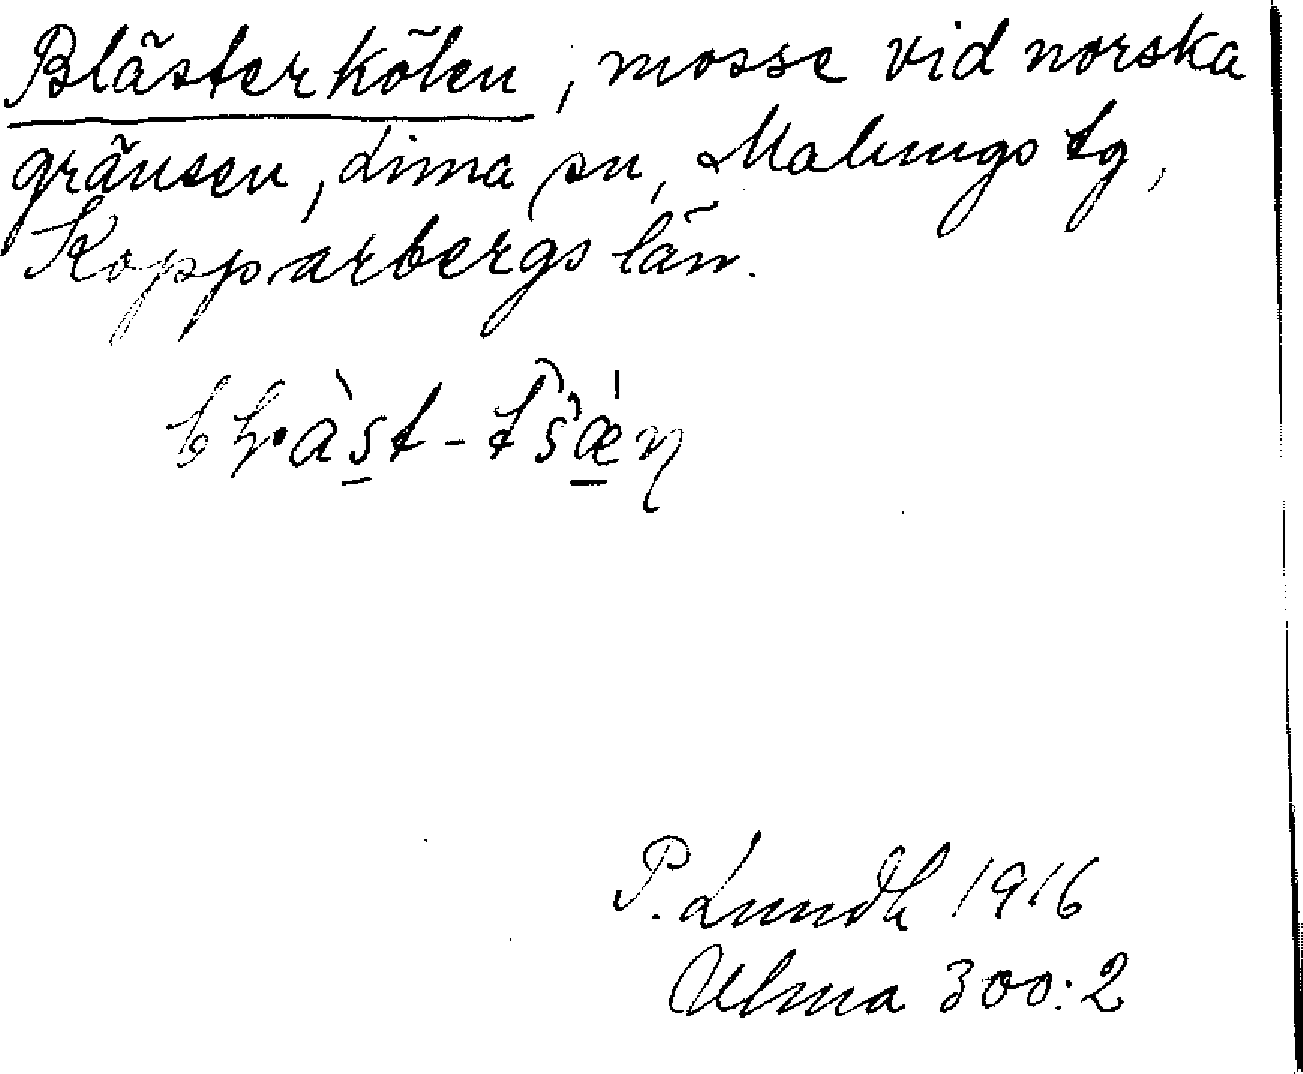 Blästerkölen, mosse vid norska
gränsen, Lima sn, Malungs tg,
Kopparbergs län.
P. Lundh 1916
Ulma 300:2